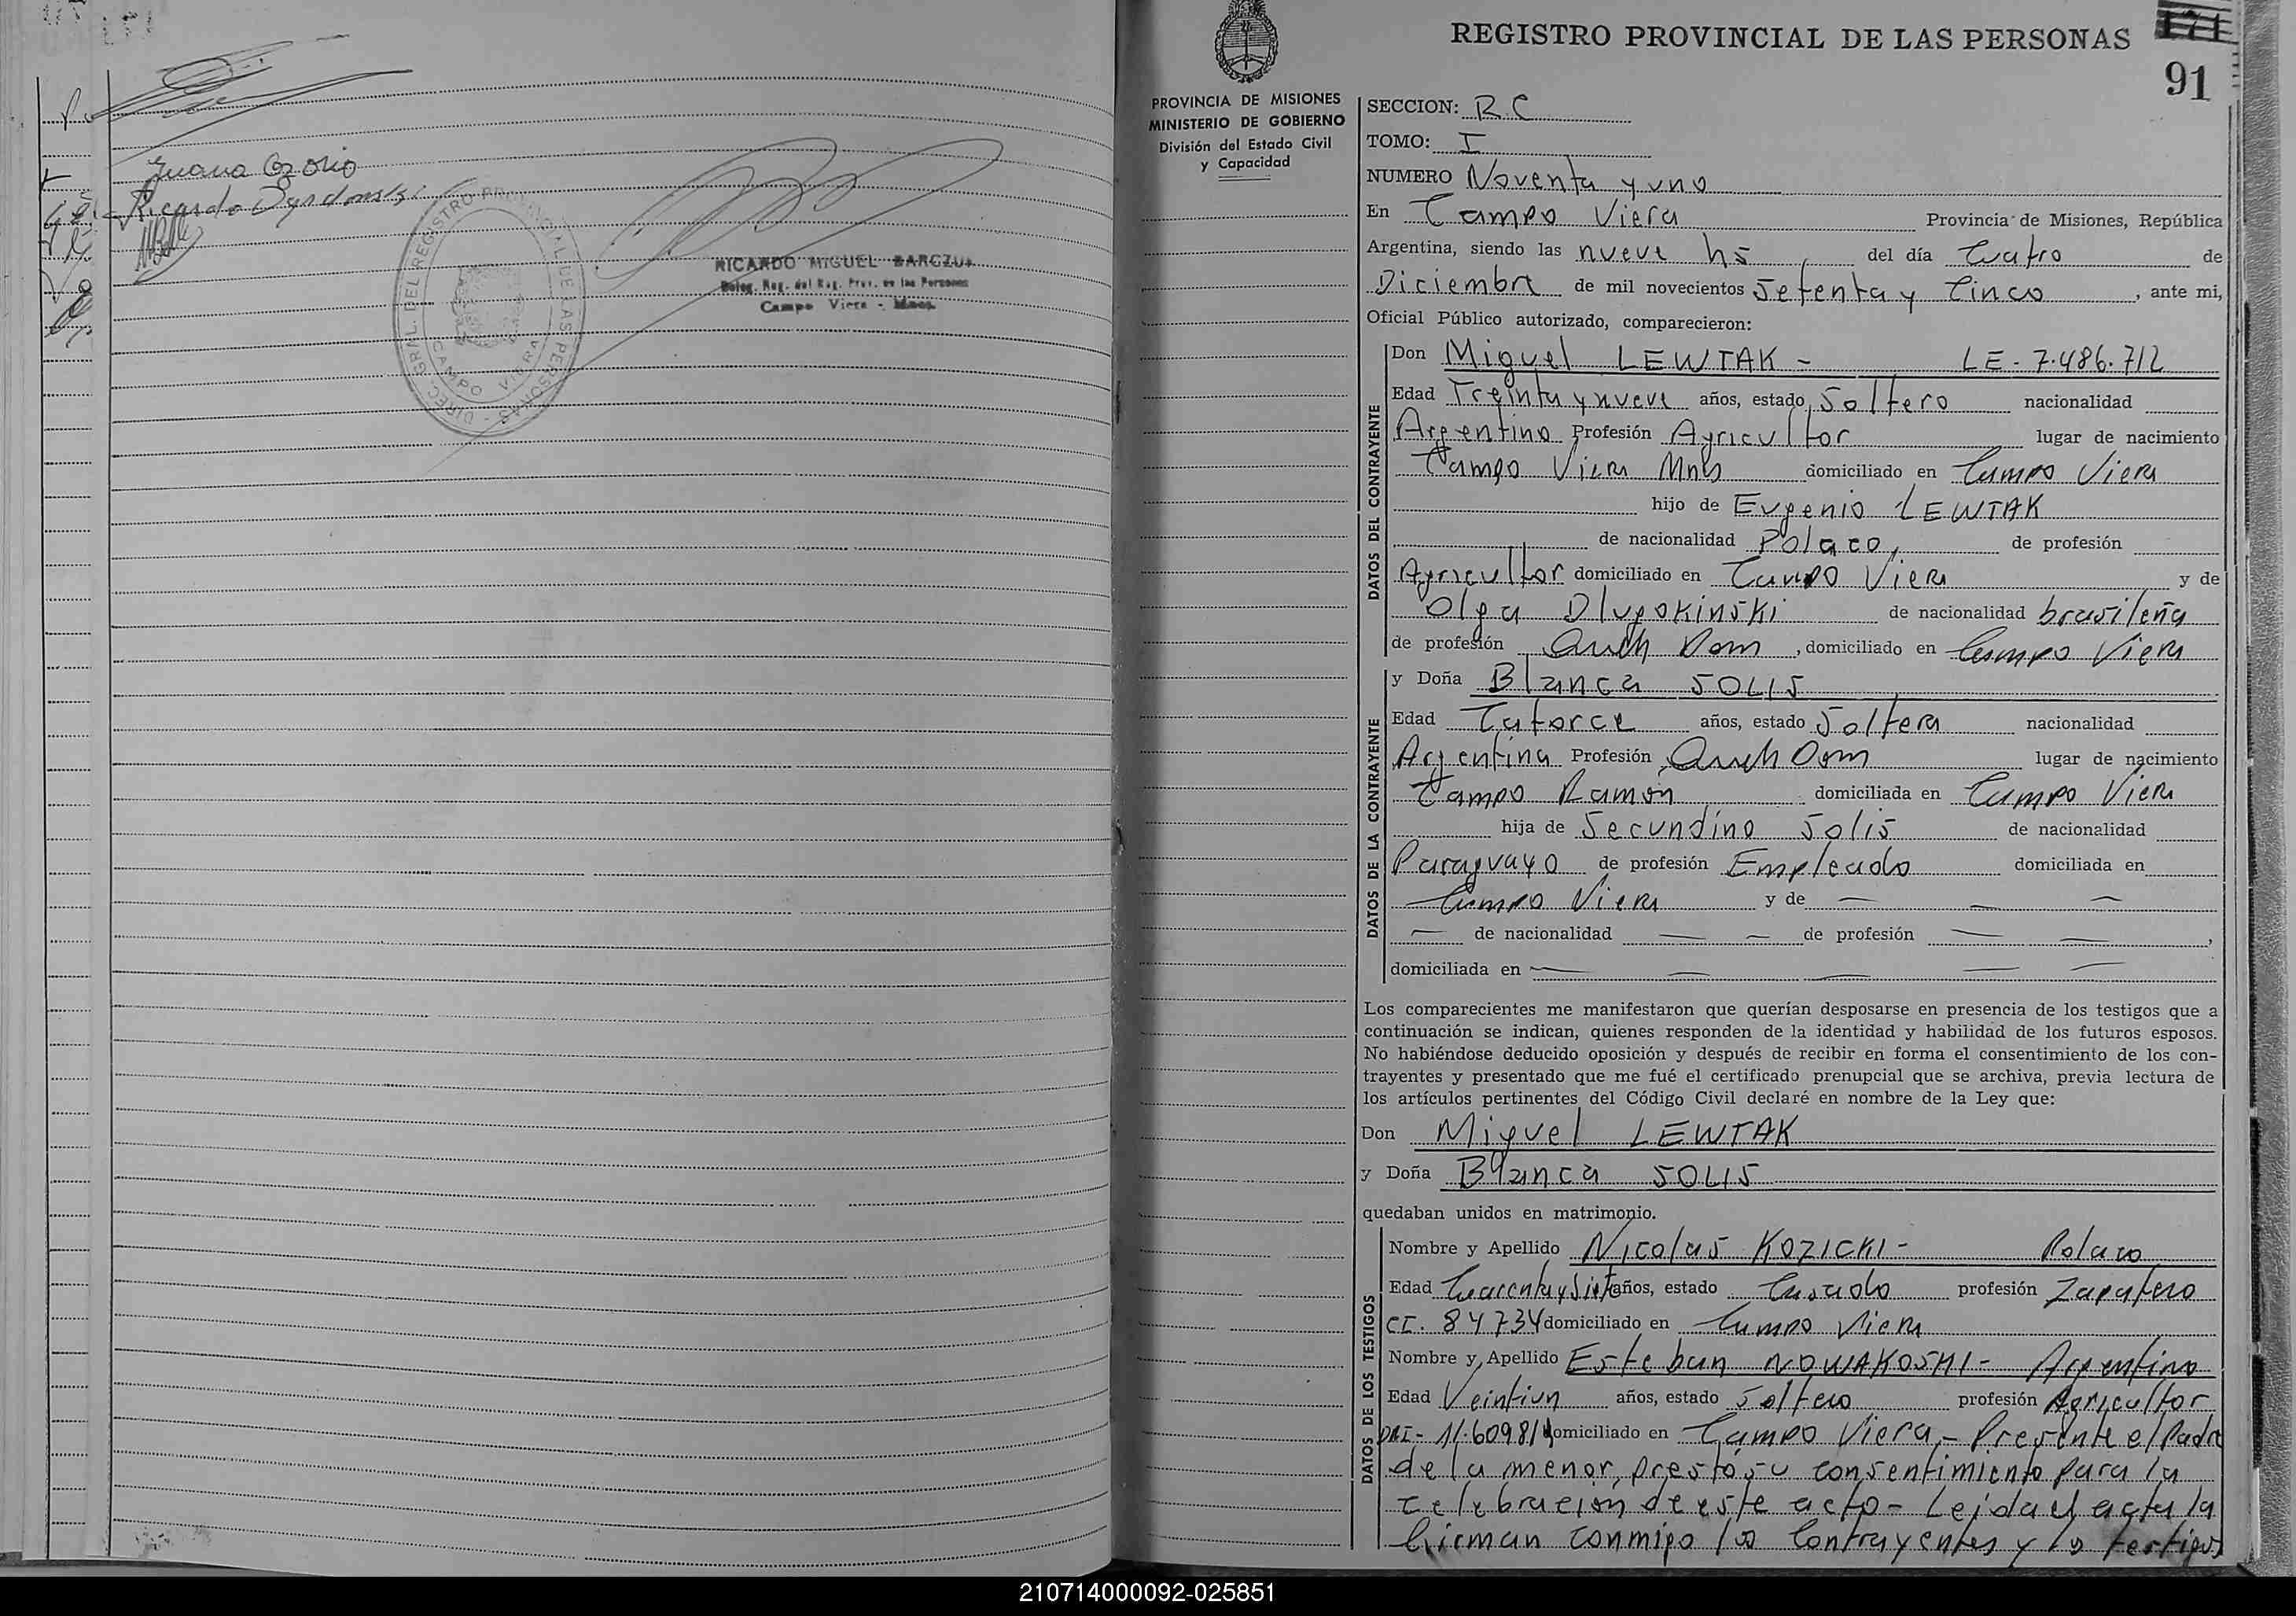 Juana Ozorio
Ricardo
DIREC. GRAL. DEL REGISTRO PROVINCIAL DE LAS PERSONAS
CAMPO VIERA
RICARDO MIGUEL BARCZUK
Deleg. Reg. del Reg. Prov. de las Personas
Campo Viera - Mnes.
REGISTRO PROVINCIAL DE LAS PERSONAS
171
91
PROVINCIA DE MISIONES
MINISTERIO DE GOBIERNO
División del Estado Civil
y Capacidad
SECCION: R.C
TOMO: I
NUMERO Noventa y uno
En Campo Viera Provincia de Misiones, República
Argentina, siendo las nueve hs del día Cuatro de
Diciembre de mil novecientos Setenta y Cinco, ante mi,
Oficial Público autorizado, comparecieron:
DATOS DEL CONTRAYENTE
Don Miguel LEWTAK - LE - 7.486.712
Edad Treinta y nueve años, estado Soltero nacionalidad
Argentino Profesión Agricultor lugar de nacimiento
Campo Viera Mns domiciliado en Campo Viera
hijo de Eugenio LEWTAK
de nacionalidad Polaco, de profesión
Agricultor domiciliado en Campo Viera y de
Olga Dlugokinski de nacionalidad brasileña
de profesión Queh Dom, domiciliado en Campo Viera
DATOS DE LA CONTRAYENTE
y Doña Blanca SOLIS
Edad Catorce años, estado Soltera nacionalidad
Argentina Profesión Queh Dom lugar de nacimiento
Campo Ramon domiciliada en Campo Viera
hija de Secundino Solis de nacionalidad
Paraguayo de profesión Empleado domiciliada en
Campo Viera y de — — —
— de nacionalidad — — de profesión — —,
domiciliada en — — — — —
Los comparecientes me manifestaron que querían desposarse en presencia de los testigos que a
continuación se indican, quienes responden de la identidad y habilidad de los futuros esposos.
No habiéndose deducido oposición y después de recibir en forma el consentimiento de los con-
trayentes y presentado que me fué el certificado prenupcial que se archiva, previa lectura de
los artículos pertinentes del Código Civil declaré en nombre de la Ley que:
Don Miguel LEWTAK
y Doña Blanca SOLIS
quedaban unidos en matrimonio.
DATOS DE LOS TESTIGOS
Nombre y Apellido Nicolas KOZICKI - Polaco
Edad Cuarenta y Siete años, estado Casado profesión Zapatero
CI. 84734 domiciliado en Campo Viera
Nombre y Apellido Esteban NOWAKOSKI - Argentino
Edad Veintiun años, estado Soltero profesión Agricultor
DNI - 11.609814 domiciliado en Campo Viera - Presente el Padre
de la menor, prestó su consentimiento para la
celebración de este acto - Leida el acta la
firman conmigo los Contrayentes y los testigos
210714000092-025851